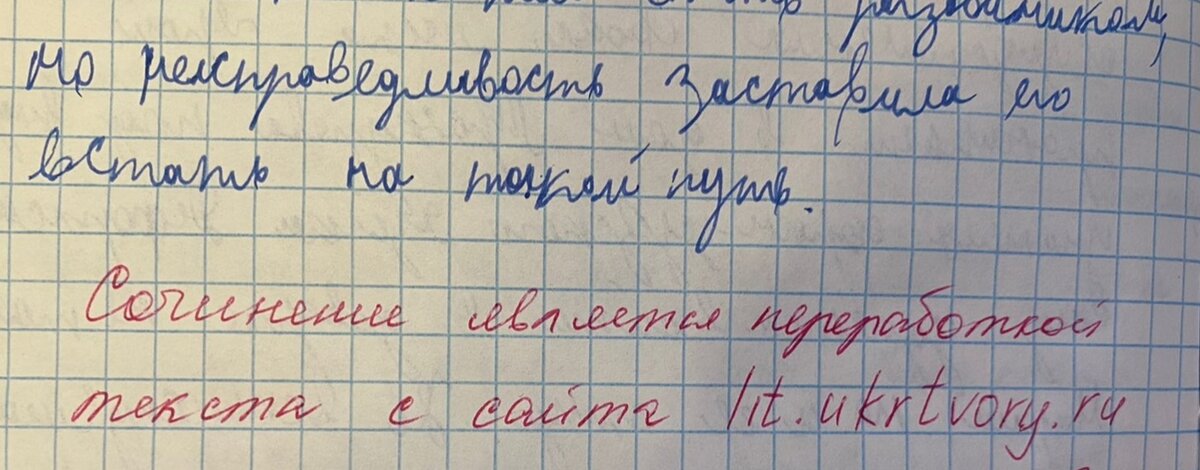 разбойником,
но несправедливость заставила его
встать на такой путь.
Сочинение является переработкой
текста с сайта lit.ukrtvory.ru